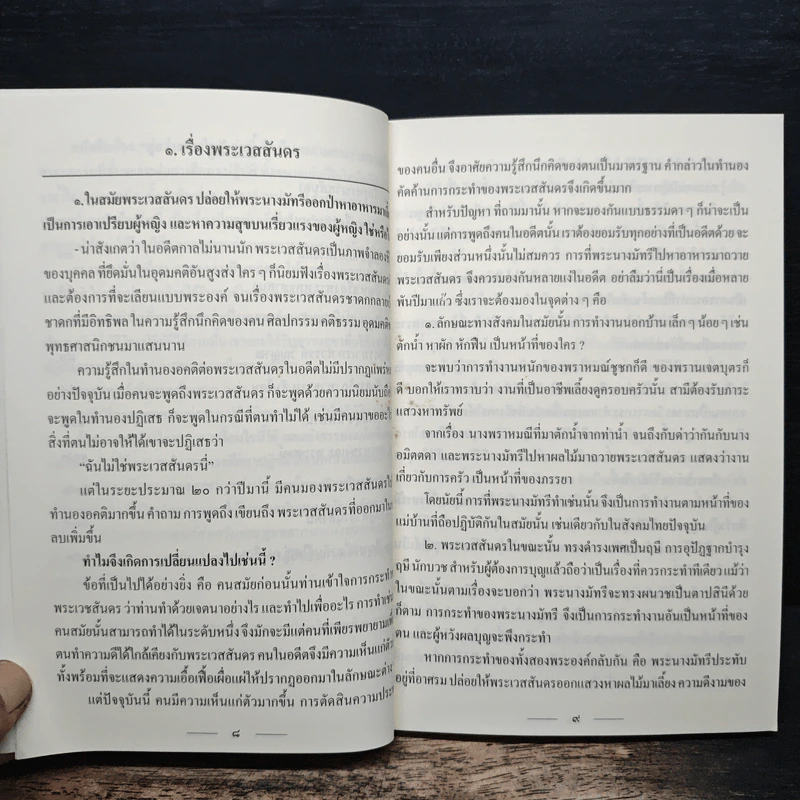 ๑. เรื่องพระเวสสันดร
๑. ในสมัยพระเวสสันดร ปล่อยให้พระนางมัทรีออกป่าหาอาหารมา
เป็นการเอาเปรียบผู้หญิง และหาความสุขบนเรี่ยวแรงของผู้หญิง ใช่หรือ
- น่าสังเกตว่า ในอดีตกาลไม่นานนัก พระเวสสันดรเป็นภาพจำลอง
ของบุคคล ที่ยึดมั่นในอุดมคติอันสูงส่ง ใคร ๆ ก็นิยมฟังเรื่องพระเวสสันดร
และต้องการที่จะเลียนแบบพระองค์ จนเรื่องพระเวสสันดรชาดกกลาย
ชาดกที่มีอิทธิพล ในความรู้สึกนึกคิดของคน ศิลปกรรม คติธรรม อุดมคติ
พุทธศาสนิกชนมาแสนนาน
ความรู้สึกในทำนองอคติต่อพระเวสสันดรในอดีตไม่มีปรากฏแพร่หลาย
อย่างปัจจุบัน เมื่อคนจะพูดถึงพระเวสสันดร ก็จะพูดด้วยความนิยมนับถือ
จะพูดในทำนองปฏิเสธ ก็จะพูดในกรณีที่ตนทำไม่ได้ เช่นมีคนมาขออะไร
สิ่งที่ตนไม่อาจให้ได้เขาจะปฏิเสธว่า
“ฉันไม่ใช่พระเวสสันดรนี่”
แต่ในระยะประมาณ ๒๐ กว่าปีมานี้ มีคนมองพระเวสสันดร
ทำนองอคติมากขึ้น คำถาม การพูดถึง เขียนถึง พระเวสสันดรที่ออกมาใน
ลบเพิ่มขึ้น
ทำไมจึงเกิดการเปลี่ยนแปลงไปเช่นนี้ ?
ข้อที่เป็นไปได้อย่างยิ่ง คือ คนสมัยก่อนนั้นท่านเข้าใจการกระทำ
พระเวชสันดร ว่าท่านทำด้วยเจตนาอย่างไร และทำไปเพื่ออะไร การทำเช่น
คนสมัยนั้นสามารถทำได้ในระดับหนึ่ง จึงมักจะมีแต่คนที่เพียรพยายามเพื่อ
ตนทำความดีได้ใกล้เคียงกับพระเวสสันดร คนในอดีตจึงมีความเห็นแก่ตัว
ทั้งพร้อมที่จะแสดงความเอื้อเฟื้อเผื่อแผ่ให้ปรากฏออกมาในลักษณะต่าง
แต่ปัจจุบันนี้ คนมีความเห็นแก่ตัวมากขึ้น การตัดสินความประ
๘
ของคนอื่น จึงอาศัยความรู้สึกนึกคิดของตนเป็นมาตรฐาน คำกล่าวในทำนอง
คัดค้านการกระทำของพระเวสสันดรจึงเกิดขึ้นมาก
สำหรับปัญหา ที่ถามมานั้น หากจะมองกันแบบธรรมดา ๆ ก็น่าจะเป็น
อย่างนั้น แต่การพูดถึงคนในอดีตนั้น เราต้องยอมรับทุกอย่างที่เป็นอดีตด้วย จะ
ยอมรับเพียงส่วนหนึ่งนั้นไม่สมควร การที่พระนางมัทรีไปหาอาหารมาถวาย
พระเวสสันดร จึงควรมองกันหลายแง่ในอดีต อย่าลืมว่านี่เป็นเรื่องเมื่อหลาย
พันปีมาแก๊ว ซึ่งเราจะต้องมองในจุดต่าง ๆ คือ
๑. ลักษณะทางสังคมในสมัยนั้น การทำงานนอกบ้าน เล็ก ๆ น้อย ๆ เช่น
ตักน้ำ หาผัก หักฟืน เป็นหน้าที่ของใคร ?
จะพบว่าการทำงานหนักของพราหมณ์ชูชกก็ดี ของพรานเจตบุตรก็
ดี บอกให้เราทราบว่า งานที่เป็นอาชีพเลี้ยงดูครอบครัวนั้น สามีต้องรับภาระ
แสวงหาทรัพย์
จากเรื่อง นางพราหมณีที่มาตักน้ำจากท่าน้ำ จนถึงกับด่าว่ากันกับนาง
อมิตตดา และพระนางมัทรีไปหาผลไม้มาถวายพระเวสสันดร แสดงว่างาน
เกี่ยวกับการครัว เป็นหน้าที่ของภรรยา
โดยนัยนี้ การที่พระนางมัทรีทำเช่นนั้น จึงเป็นการทำงานตามหน้าที่ของ
แม่บ้านที่ถือปฏิบัติกันในสมัยนั้น เช่นเดียวกับในสังคมไทยปัจจุบัน
๒. พระเวสสันดรในขณะนั้น ทรงดำรงเพศเป็นฤษี การอุปัฏฐากบำรุง
ฤษี นักบวช สำหรับผู้ต้องการบุญแล้วถือว่าเป็นเรื่องที่ควรกระทำทีเดียว แม้ว่า
ในขณะนั้นตามเรื่องจะบอกว่า พระนางมัทรีจะทรงผนวชเป็นดาปสินีด้วย
ก็ตาม การกระทำของพระนางมัทรี จึงเป็นการกระทำงานอันเป็นหน้าที่ของ
ตน และผู้หวังผลบุญจะพึงกระทำ
หากการกระทำของทั้งสองพระองค์กลับกัน คือ พระนางมัทรีประทับ
อยู่ที่อาศรม ปล่อยให้พระเวสสันดรออกแสวงหาผลไม้มาเลี้ยง ความดีงามของ
๙